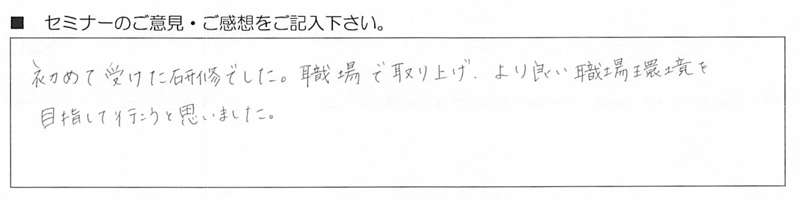 ■ セミナーのご意見・ご感想をご記入下さい。
初めて受けた研修でした。職場で取り上げ、より良い職場環境を
目指して行こうと思いました。